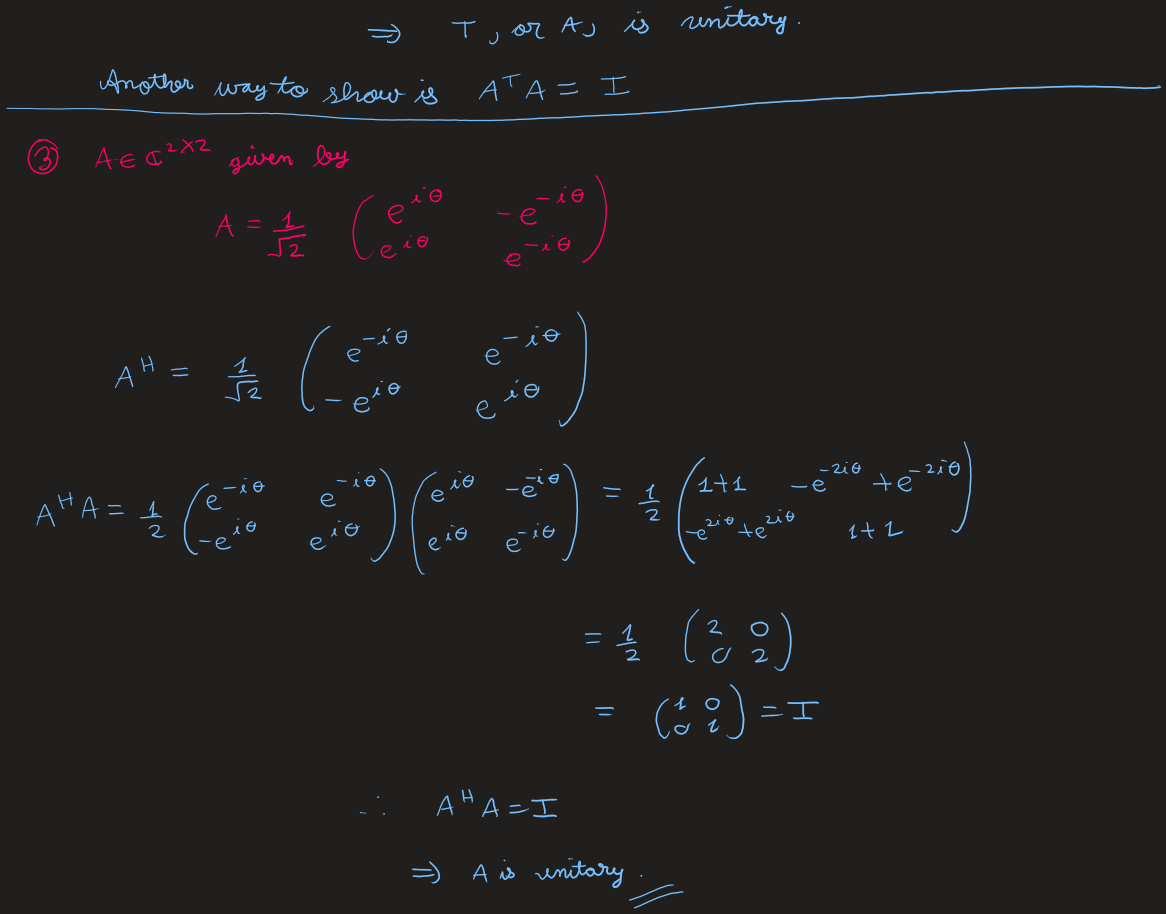 ⇒ T, or A, is unitary.
Another way to show is A^T A = I
③ A ∈ ℂ^{2×2} given by
A = 1/√2 ( e^{iθ} -e^{-iθ} ; e^{iθ} e^{-iθ} )
A^H = 1/√2 ( e^{-iθ} e^{-iθ} ; -e^{iθ} e^{iθ} )
A^H A = 1/2 ( e^{-iθ} e^{-iθ} ; -e^{iθ} e^{iθ} ) ( e^{iθ} -e^{-iθ} ; e^{iθ} e^{-iθ} ) = 1/2 ( 1+1 -e^{-2iθ} + e^{-2iθ} ; -e^{2iθ} + e^{2iθ} 1+1 )
= 1/2 ( 2 0 ; 0 2 )
= ( 1 0 ; 0 1 ) = I
∴ A^H A = I
⇒ A is unitary.